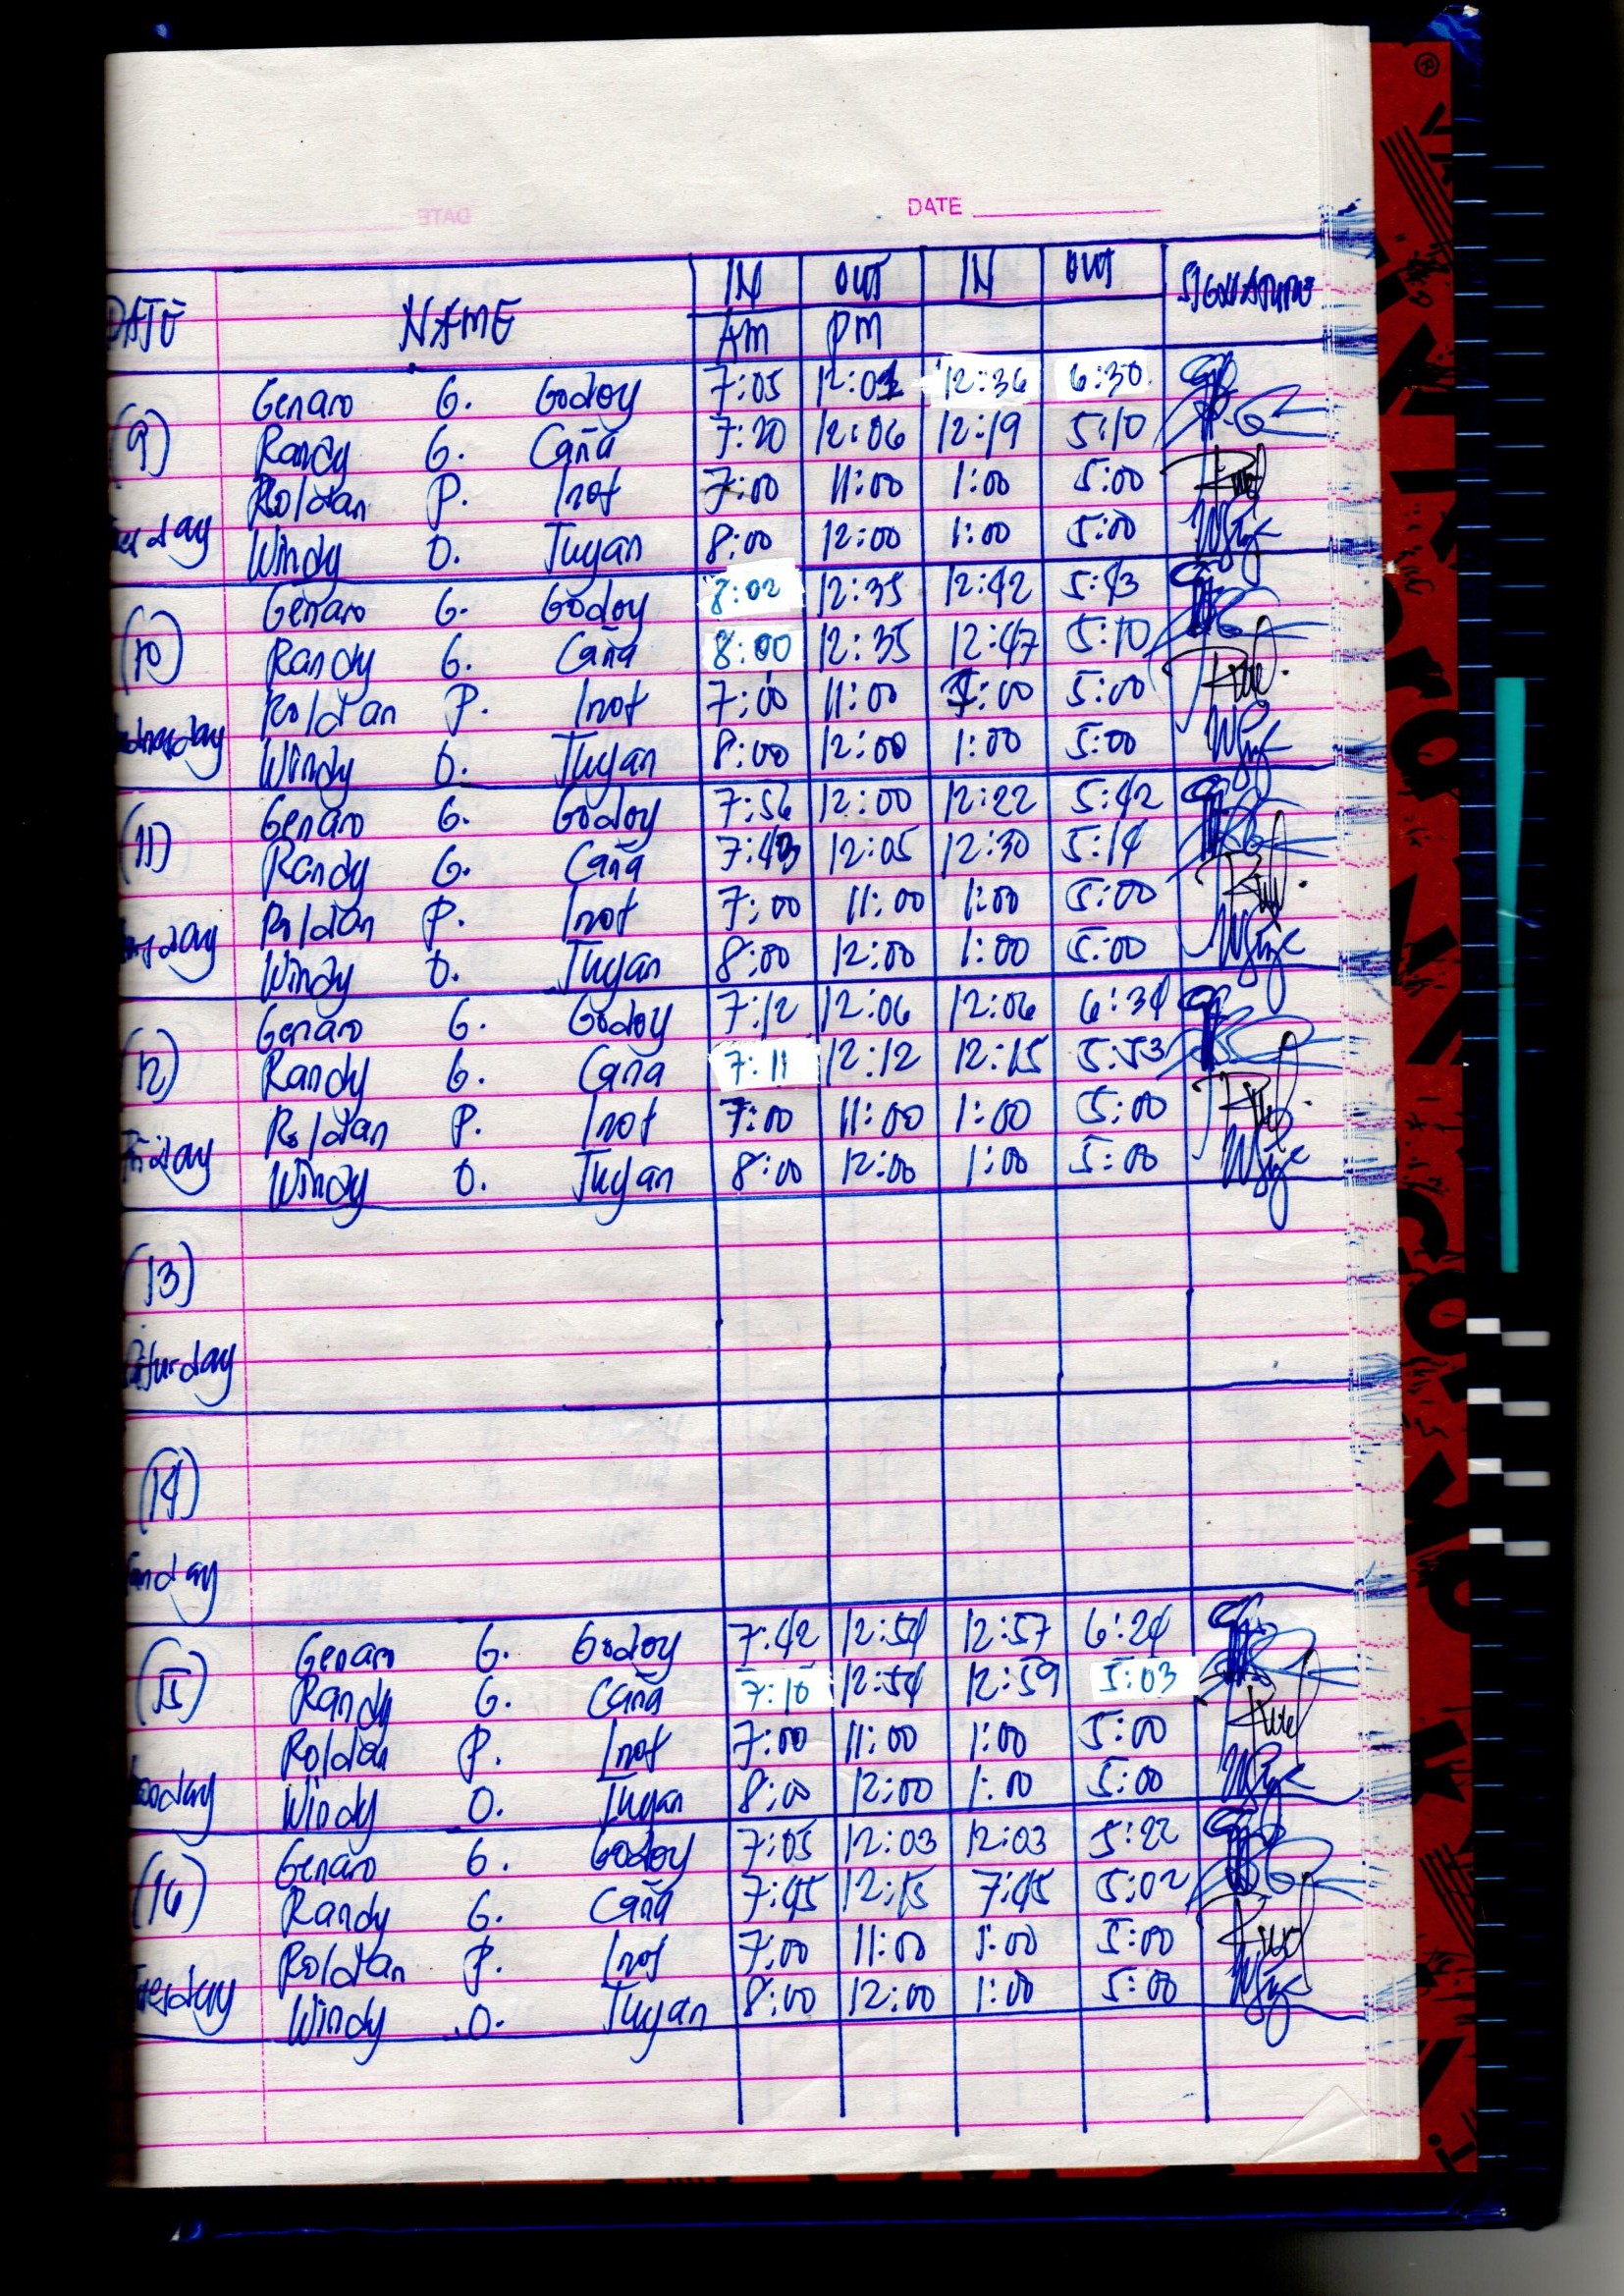 DATE
DATE NAME IN OUT IN OUT SIGNATURE
AM PM
Genaro G. Godoy 7:05 12:01 12:36 6:30
(9) Randy G. Caña 7:20 12:06 12:19 5:10
Roldan P. Inot 7:00 11:00 1:00 5:00
Windy O. Tuyan 8:00 12:00 1:00 5:00
Genaro G. Godoy 8:02 12:35 12:42 5:43
(10) Randy G. Caña 8:00 12:35 12:47 5:10
Roldan P. Inot 7:00 11:00 1:00 5:00
Windy O. Tuyan 8:00 12:00 1:00 5:00
Genaro G. Godoy 7:56 12:00 12:22 5:42
(11) Randy G. Caña 7:43 12:05 12:30 5:14
Roldan P. Inot 7:00 11:00 1:00 5:00
Windy O. Tuyan 8:00 12:00 1:00 5:00
Genaro G. Godoy 7:12 12:06 12:06 6:34
(12) Randy G. Caña 7:11 12:12 12:15 5:53
Roldan P. Inot 7:00 11:00 1:00 5:00
Friday Windy O. Tuyan 8:00 12:00 1:00 5:00
(13)
aturday
(14)
unday
Genaro G. Godoy 7:42 12:54 12:57 6:24
(15) Randy G. Caña 7:10 12:54 12:59 5:03
Roldan P. Inot 7:00 11:00 1:00 5:00
onday Windy O. Tuyan 8:00 12:00 1:00 5:00
Genaro G. Godoy 7:05 12:03 12:03 5:22
(16) Randy G. Caña 7:45 12:15 7:45 5:02
Roldan P. Inot 7:00 11:00 1:00 5:00
Tuesday Windy O. Tuyan 8:00 12:00 1:00 5:00